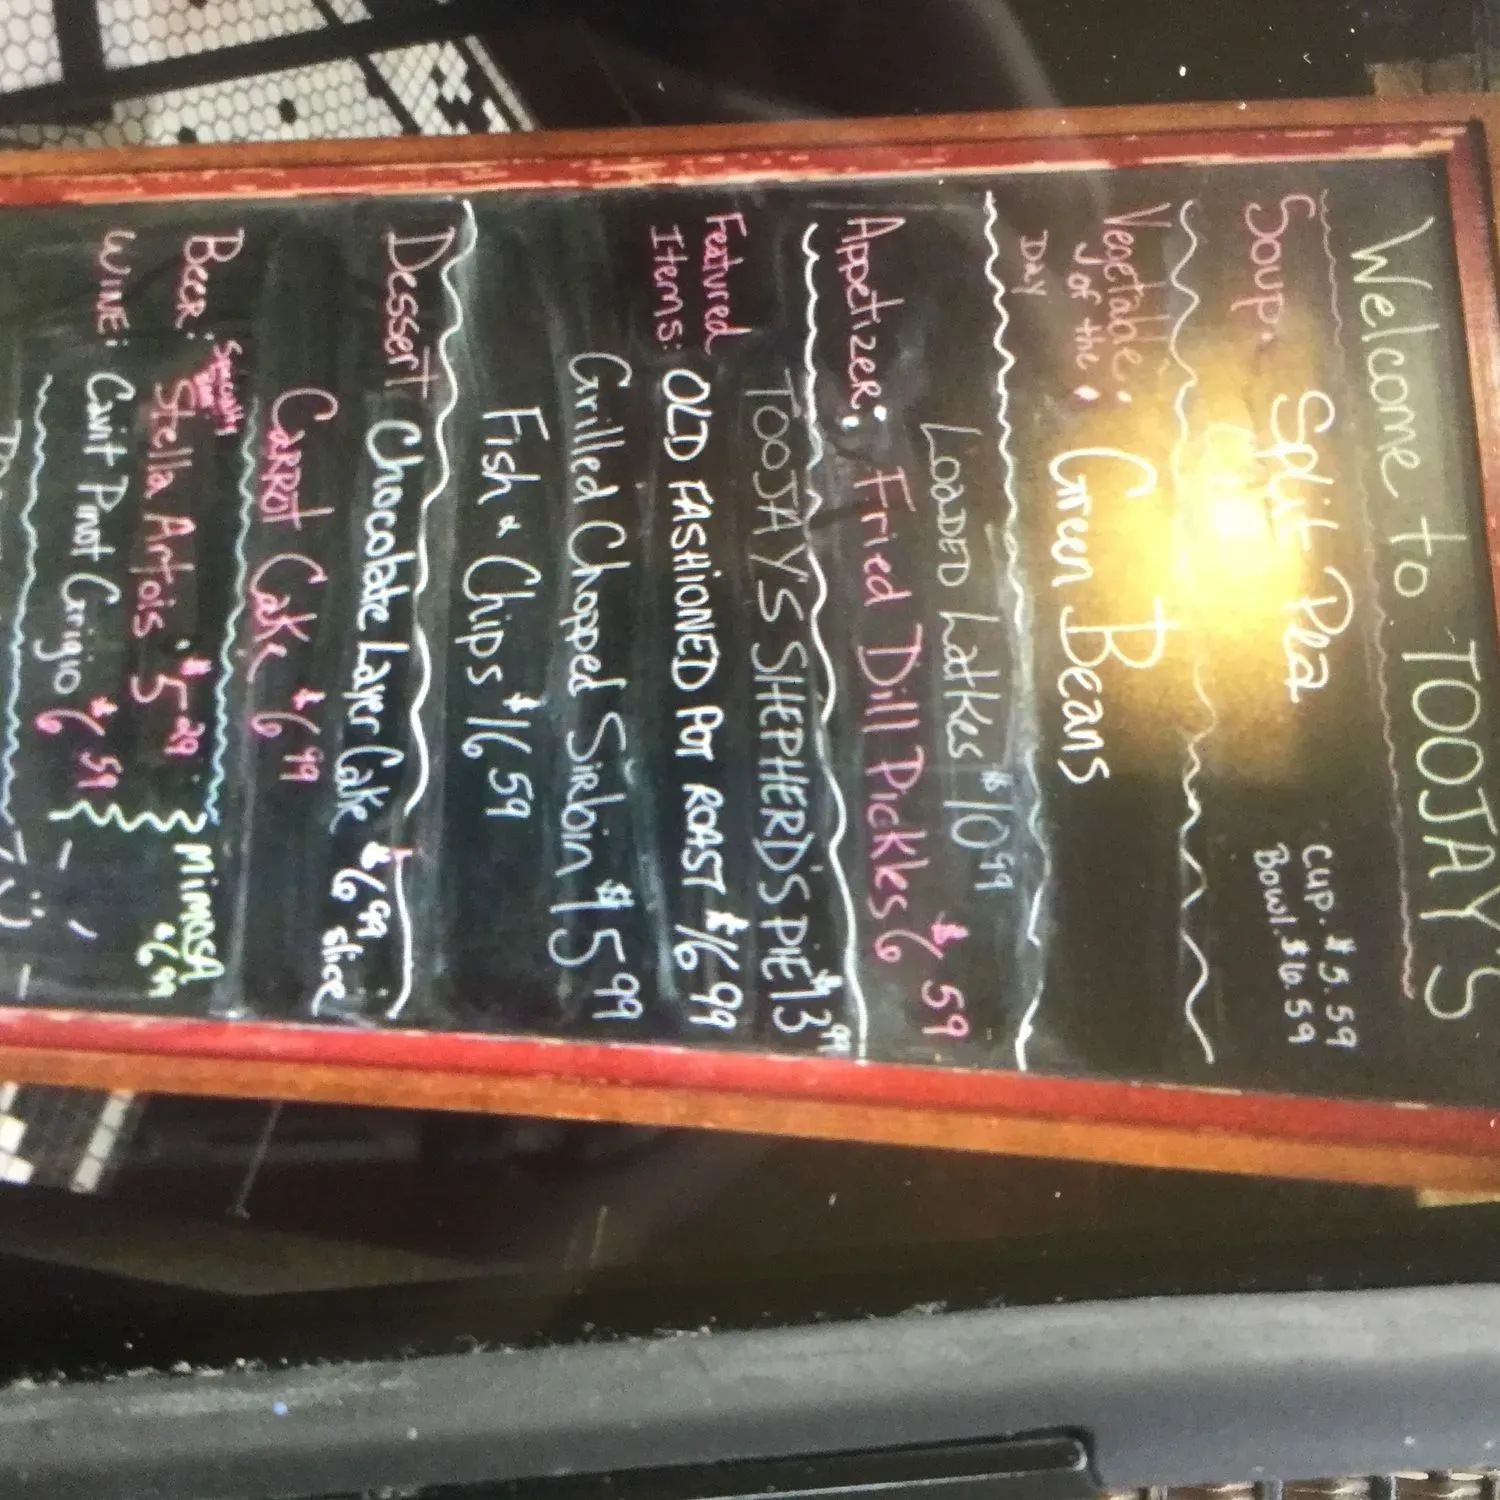 Welcome to TOOJAY'S
Soup: Split Pea
Cup. $5.59
Bowl. $6.59
Vegetable: Green Beans
of the
DAY
LOADED Latkes $10 99
Appetizer: Fried Dill Pickles $6 59
TOOJAY'S SHEPHERD'S PIE $13 99
Featured OLD FASHIONED POT ROAST $16 99
Items:
Grilled Chopped Sirloin $15 99
Fish & Chips $16 59
Dessert Chocolate Layer Cake $6 99 slice
CARROT Cake $6 99
Beer: Stella Artois $5.29
Mimosa
$6 99
WINE: Cavit Pinot Grigio $6 59